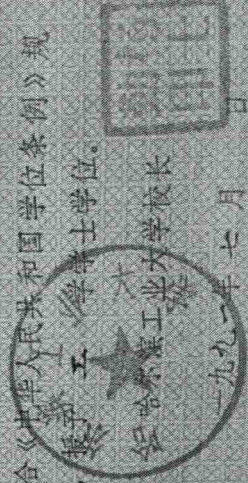 合《中华人民共和国学位条例》规
授予 工 学学士学位。
哈尔滨工业大学校长
一九九二年七月 日